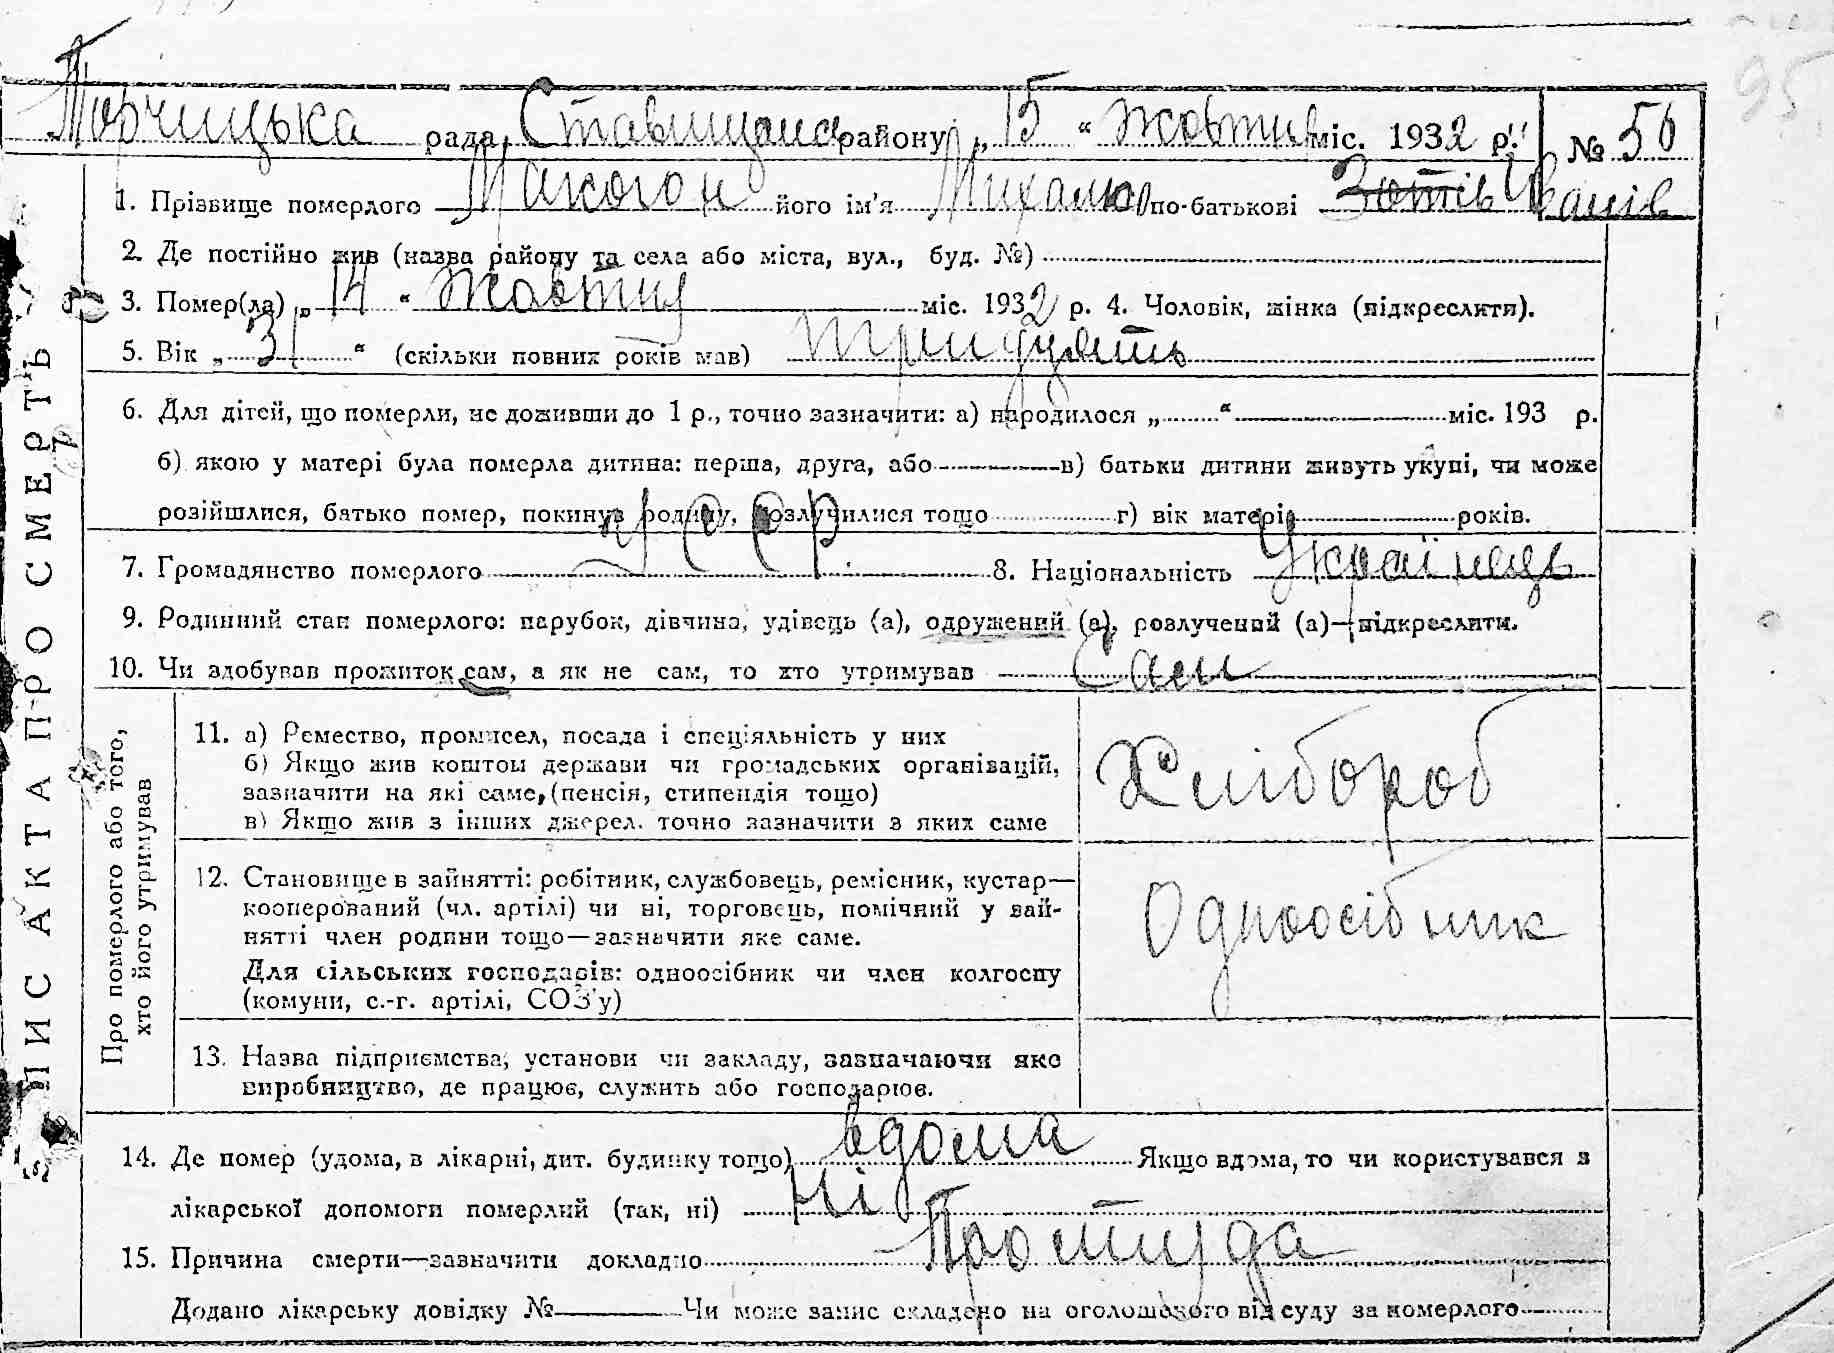 95
Торчицька рада, Ставищанс району „15“ Жовтня міс. 1932 р. № 56
1. Прізвище померлого Макогон його ім’я Михайло по-батькові Зотів Іванів
2. Де постійно жив (назва району та села або міста, вул., буд. №)
3. Помер(ла) „14“ Жовтня міс. 1932 р. 4. Чоловік, жінка (підкреслити).
5. Вік „31“ (скільки повних років мав) тридцять
6. Для дітей, що померли, не доживши до 1 р., точно зазначити: а) народилося „ “ міс. 193 р.
б) якою у матері була померла дитина: перша, друга, або в) батьки дитини живуть укупі, чи може
розійшлися, батько помер, покинув родину, розлучилися тощо г) вік матері років.
7. Громадянство померлого УССР 8. Національність Українець
9. Родинний стан померлого: парубок, дівчина, удівець (а), одружений (а), розлучений (а)—підкреслити.
10. Чи здобував прожиток сам, а як не сам, то хто утримував Сам
11. а) Ремество, промисел, посада і спеціяльність у них
б) Якщо жив коштом держави чи громадських організацій,
зазначити на які саме, (пенсія, стипендія тощо)
в) Якщо жив з інших джерел, точно зазначити з яких саме
Хлібороб
12. Становище в занятті: робітник, службовець, ремісник, кустар—
кооперований (чл. артілі) чи ні, торговець, помічний у зай-
нятті член родини тощо—зазначити яке саме.
Для сільських господарів: одноосібник чи член колгоспу
(комуни, с.-г. артілі, СОЗ’у)
Одноосібник
13. Назва підприємства, установи чи закладу, зазначаючи яке
виробництво, де працює, служить або господарює.
14. Де помер (удома, в лікарні, дит. будинку тощо) вдома Якщо вдома, то чи користувався з
лікарської допомоги померлий (так, ні) Ні
15. Причина смерти—зазначити докладно Простуда
Додано лікарську довідку № Чи може запис складено на оголошеного від суду за померлого
ПИС АКТА ПРО СМЕРТЬ
Про померлого або того,
хто його утримував